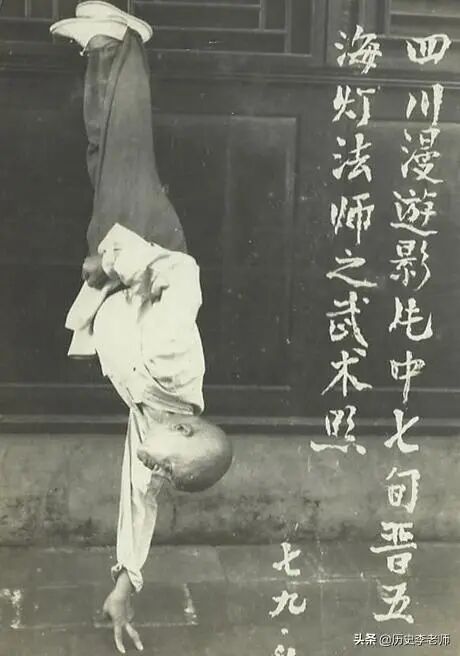 四川漫遊影片中七旬晋五
海灯法师之武术照
七九.
头条 @历史李老师